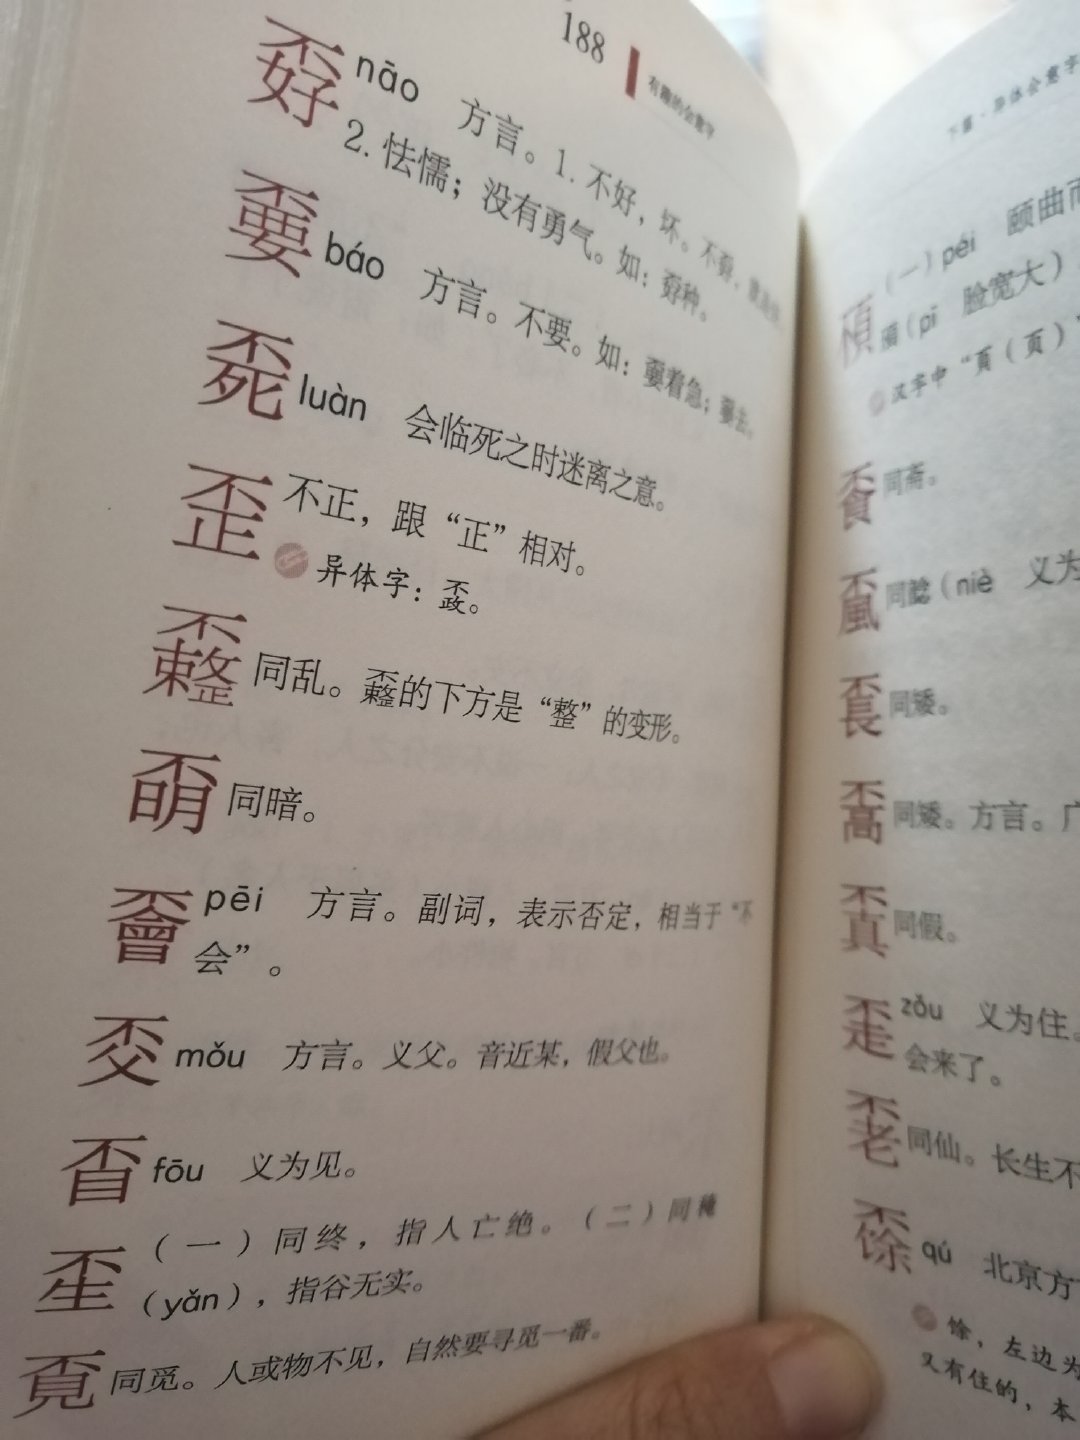 188
有趣的会意字
孬 nāo 方言。1. 不好，坏。
2. 怯懦；没有勇气。如：孬种。
嫑 báo 方言。不要。如：嫑着急；嫑去。
luàn 会临死之时迷离之意。
歪 不正，跟“正”相对。
异体字：
同乱。的下方是“整”的变形。
同暗。
pēi 方言。副词，表示否定，相当于“不
会”。
mǒu 方言。义父。音近某，假父也。
fōu 义为见。
（一）同终，指人亡绝。（二）同
（yǎn），指谷无实。
覔 同觅。人或物不见，自然要寻觅一番。
下篇·异体会意字
（一）péi 颐曲而
（pī 脸宽大）
汉字中“頁（页）”
同斋。
同（niè 义为
同矮。
同矮。方言。广
同假。
zǒu 义为住。
会来了。
同仙。长生不
qú 北京方
馀，左边为
又有住的，本